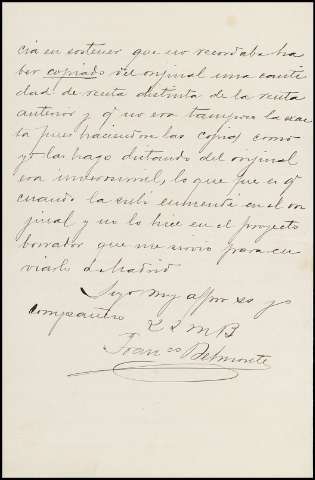 cia en sostener que no recordaba ha
ber copiado del original una canti
dad de renta distinta de la renta
anterior y q̃ no era tampoco la exac
ta pues haciendose las copias como
yo las hago dictando del original
era inverosimil, lo que fue es q̃
cuando la subí enmendé en el ori
jinal y no lo hice en el proyecto
borrador que me sirvió para en
viarlo a Madrid
Suyo my affmo ss y
compañero
Q S M B
Franco Belmonte